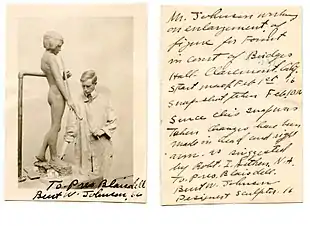 To Pres. Blaisdell
Burt W. Johnson 16
Mr. Johnson working
on enlargement of
figure for Fount
in court of Bridges
Hall Claremont Calif.
Start made Feb 1st 16
Snap shot taken Feb 10 16
Since this snap was
taken changes have been
made in head and right
arm as suggested
by Robt. I. Aitken, N.A.
To Pres. Blaisdell.
Burt W. Johnson
Designer Sculptor. 16